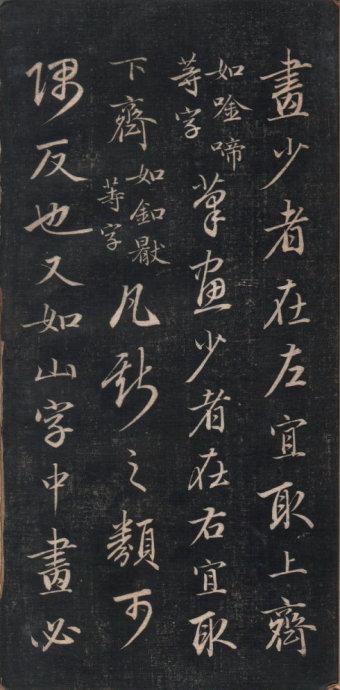 畫少者在左宜取上齊
如唫啼等字筆畫少者在右宜取
下齊如釦等字凡斯之類可
隅反也又如山字中畫必